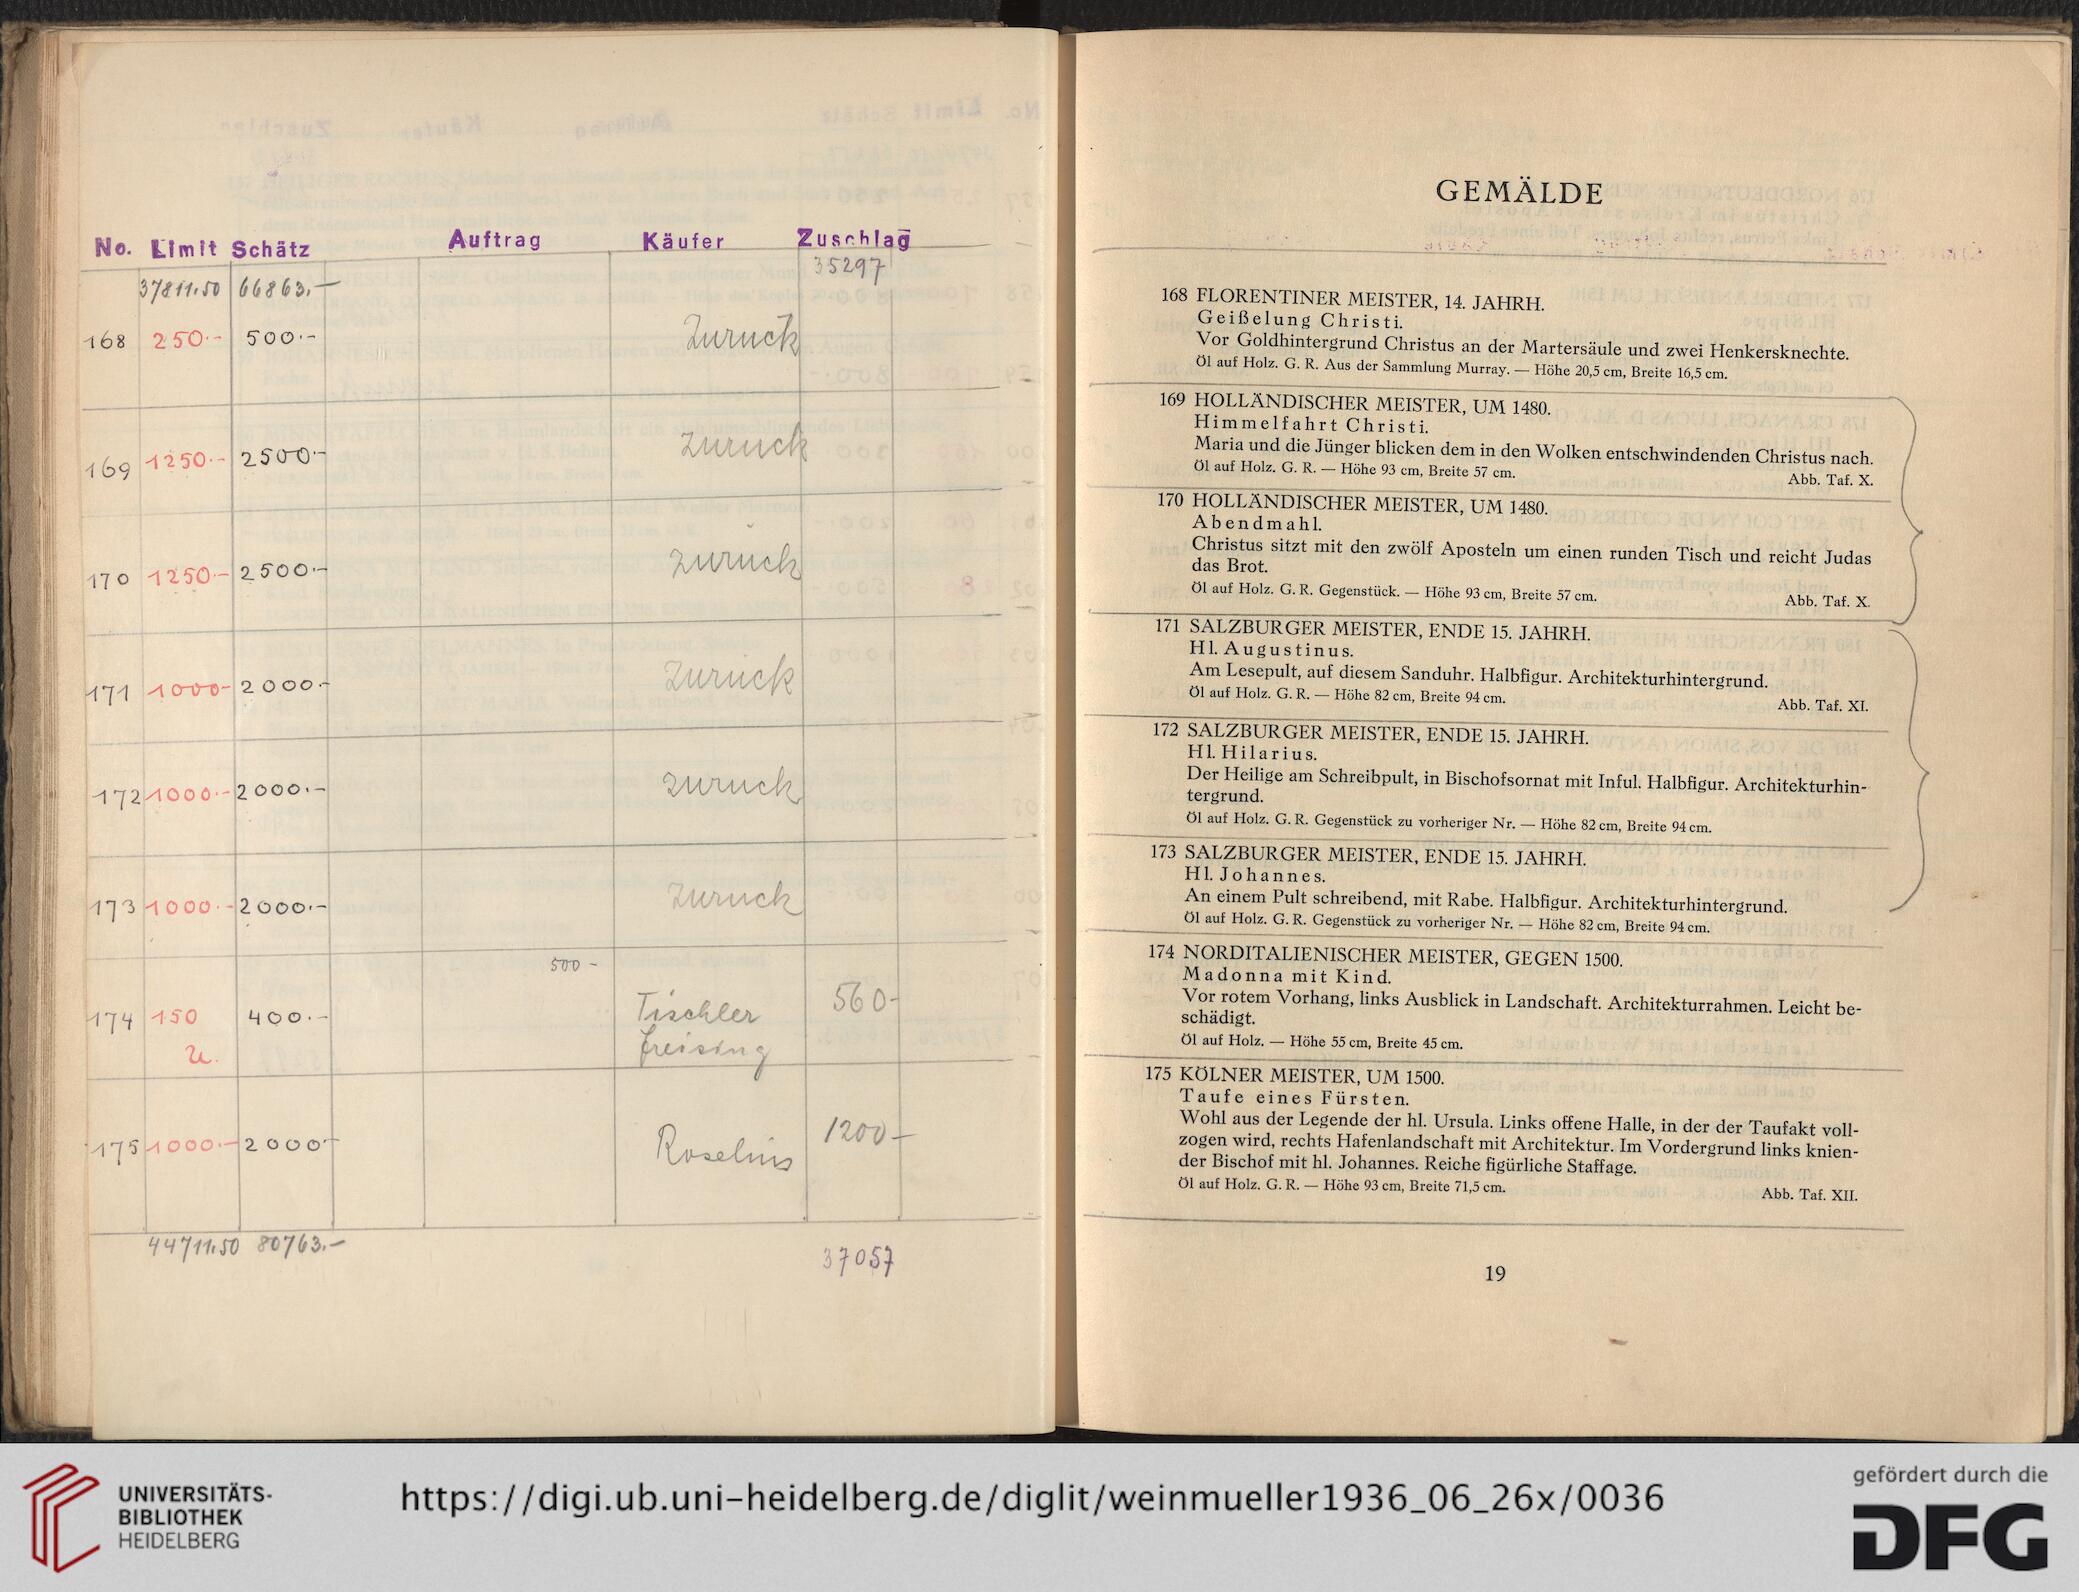 No. Limit Schätz Auftrag Käufer Zuschlag
37811.50 66863.— 35297
168 250.- 500.- Zurück
169 1250.- 2500.- Zurück
170 1250.- 2500.- Zurück
171 1000- 2000.- Zurück
172 1000.- 2000.- Zurück
173 1000.- 2000.- Zurück
500 -
174 150 400.- Tischler 560-
u. Freising
175 1000.- 2000- Roselius 1200-
44711.50 80763.— 37057
GEMÄLDE
168 FLORENTINER MEISTER, 14. JAHRH.
Geißelung Christi.
Vor Goldhintergrund Christus an der Martersäule und zwei Henkersknechte.
Öl auf Holz. G. R. Aus der Sammlung Murray. — Höhe 20,5 cm, Breite 16,5 cm.
169 HOLLÄNDISCHER MEISTER, UM 1480.
Himmelfahrt Christi.
Maria und die Jünger blicken dem in den Wolken entschwindenden Christus nach.
Öl auf Holz. G. R. — Höhe 93 cm, Breite 57 cm. Abb. Taf. X.
170 HOLLÄNDISCHER MEISTER, UM 1480.
Abendmahl.
Christus sitzt mit den zwölf Aposteln um einen runden Tisch und reicht Judas
das Brot.
Öl auf Holz. G. R. Gegenstück. — Höhe 93 cm, Breite 57 cm. Abb. Taf. X.
171 SALZBURGER MEISTER, ENDE 15. JAHRH.
Hl. Augustinus.
Am Lesepult, auf diesem Sanduhr. Halbfigur. Architekturhintergrund.
Öl auf Holz. G. R. — Höhe 82 cm, Breite 94 cm. Abb. Taf. XI.
172 SALZBURGER MEISTER, ENDE 15. JAHRH.
Hl. Hilarius.
Der Heilige am Schreibpult, in Bischofsornat mit Inful. Halbfigur. Architekturhin-
tergrund.
Öl auf Holz. G. R. Gegenstück zu vorheriger Nr. — Höhe 82 cm, Breite 94 cm.
173 SALZBURGER MEISTER, ENDE 15. JAHRH.
Hl. Johannes.
An einem Pult schreibend, mit Rabe. Halbfigur. Architekturhintergrund.
Öl auf Holz. G. R. Gegenstück zu vorheriger Nr. — Höhe 82 cm, Breite 94 cm.
174 NORDITALIENISCHER MEISTER, GEGEN 1500.
Madonna mit Kind.
Vor rotem Vorhang, links Ausblick in Landschaft. Architekturrahmen. Leicht be-
schädigt.
Öl auf Holz. — Höhe 55 cm, Breite 45 cm.
175 KÖLNER MEISTER, UM 1500.
Taufe eines Fürsten.
Wohl aus der Legende der hl. Ursula. Links offene Halle, in der der Taufakt voll-
zogen wird, rechts Hafenlandschaft mit Architektur. Im Vordergrund links knien-
der Bischof mit hl. Johannes. Reiche figürliche Staffage.
Öl auf Holz. G. R. — Höhe 93 cm, Breite 71,5 cm. Abb. Taf. XII.
19
UNIVERSITÄTS-
BIBLIOTHEK
HEIDELBERG
https://digi.ub.uni-heidelberg.de/diglit/weinmueller1936_06_26x/0036
gefördert durch die
DFG